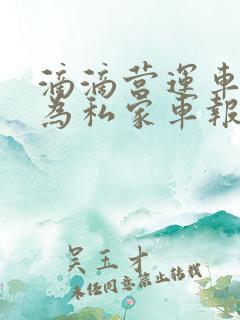 滴滴营运车
为私家车报
吴玉才
未经同意禁止转载